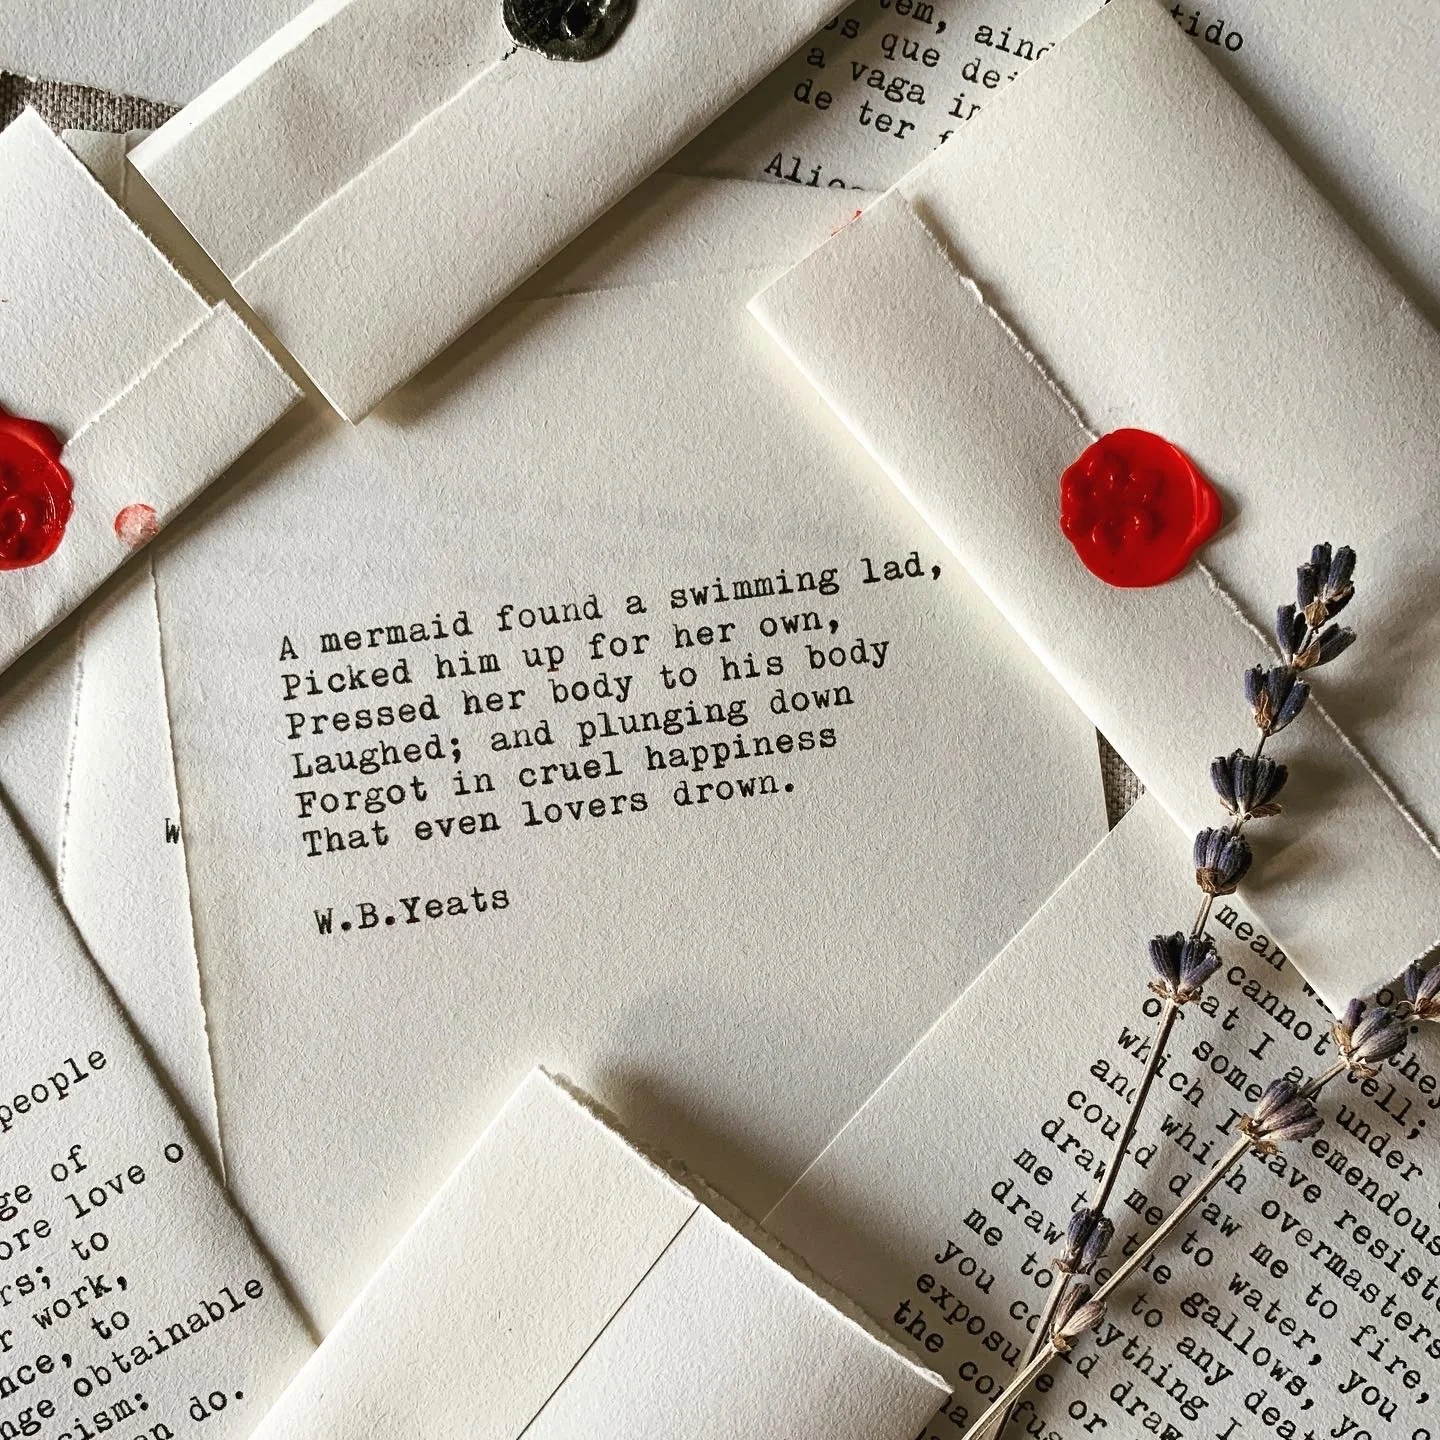 tem, aind tido
os que dei
a vaga in
de ter f
Alice
A mermaid found a swimming lad,
Picked him up for her own,
Pressed her body to his body
Laughed; and plunging down
Forgot in cruel happiness
That even lovers drown.
W.B.Yeats
W
people
ge of
ore love o
rs; to
r work,
nce, to
nge obtainable
cism:
an do.
mean
cannot they
at I a tell;
of some under
which I emendous
and have resist
could which overmasters
draw me to fire,
me to water, you
draw the gallows, yo
me to to any deat
you could anything I
exposure or
the confus